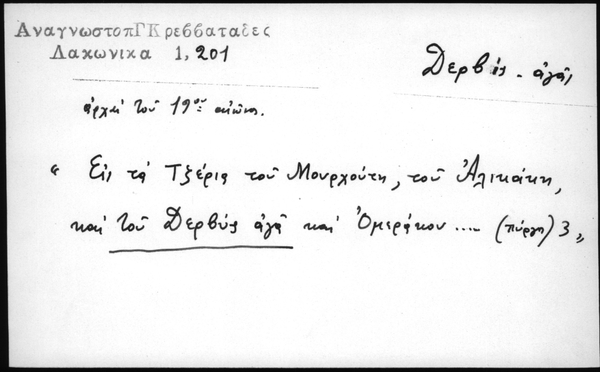 ΑναγνωστοπΓΚρεββαταδες
Λακωνικα 1, 201
Δερβίς-ἀγᾶς
ἀρχαί τοῦ 19ου αἰῶνος.
« Εἰς τά Τζέρια τοῦ Μουρχούτη, τοῦ Ἀλικάκη,
καί τοῦ Δερβύς ἀγᾶ καί Ὁμεράκου .... (πύργοι) 3 »